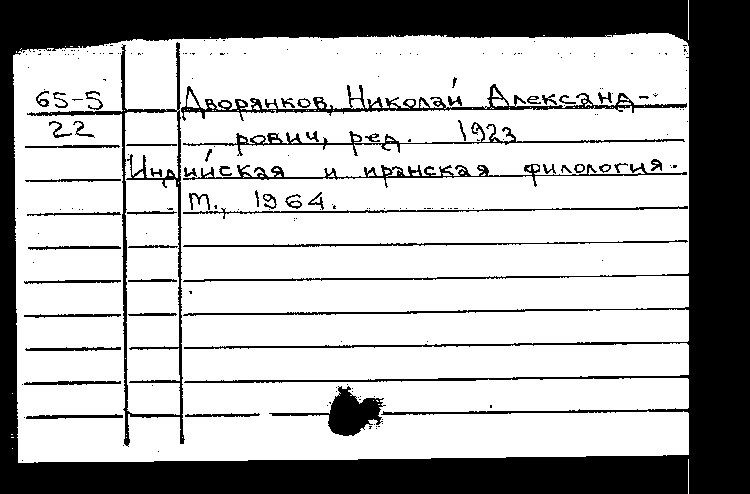 65-5 Дворянков, Николай Александ-
22 рович, ред. 1923
Индийская и иранская филология.
М., 1964.